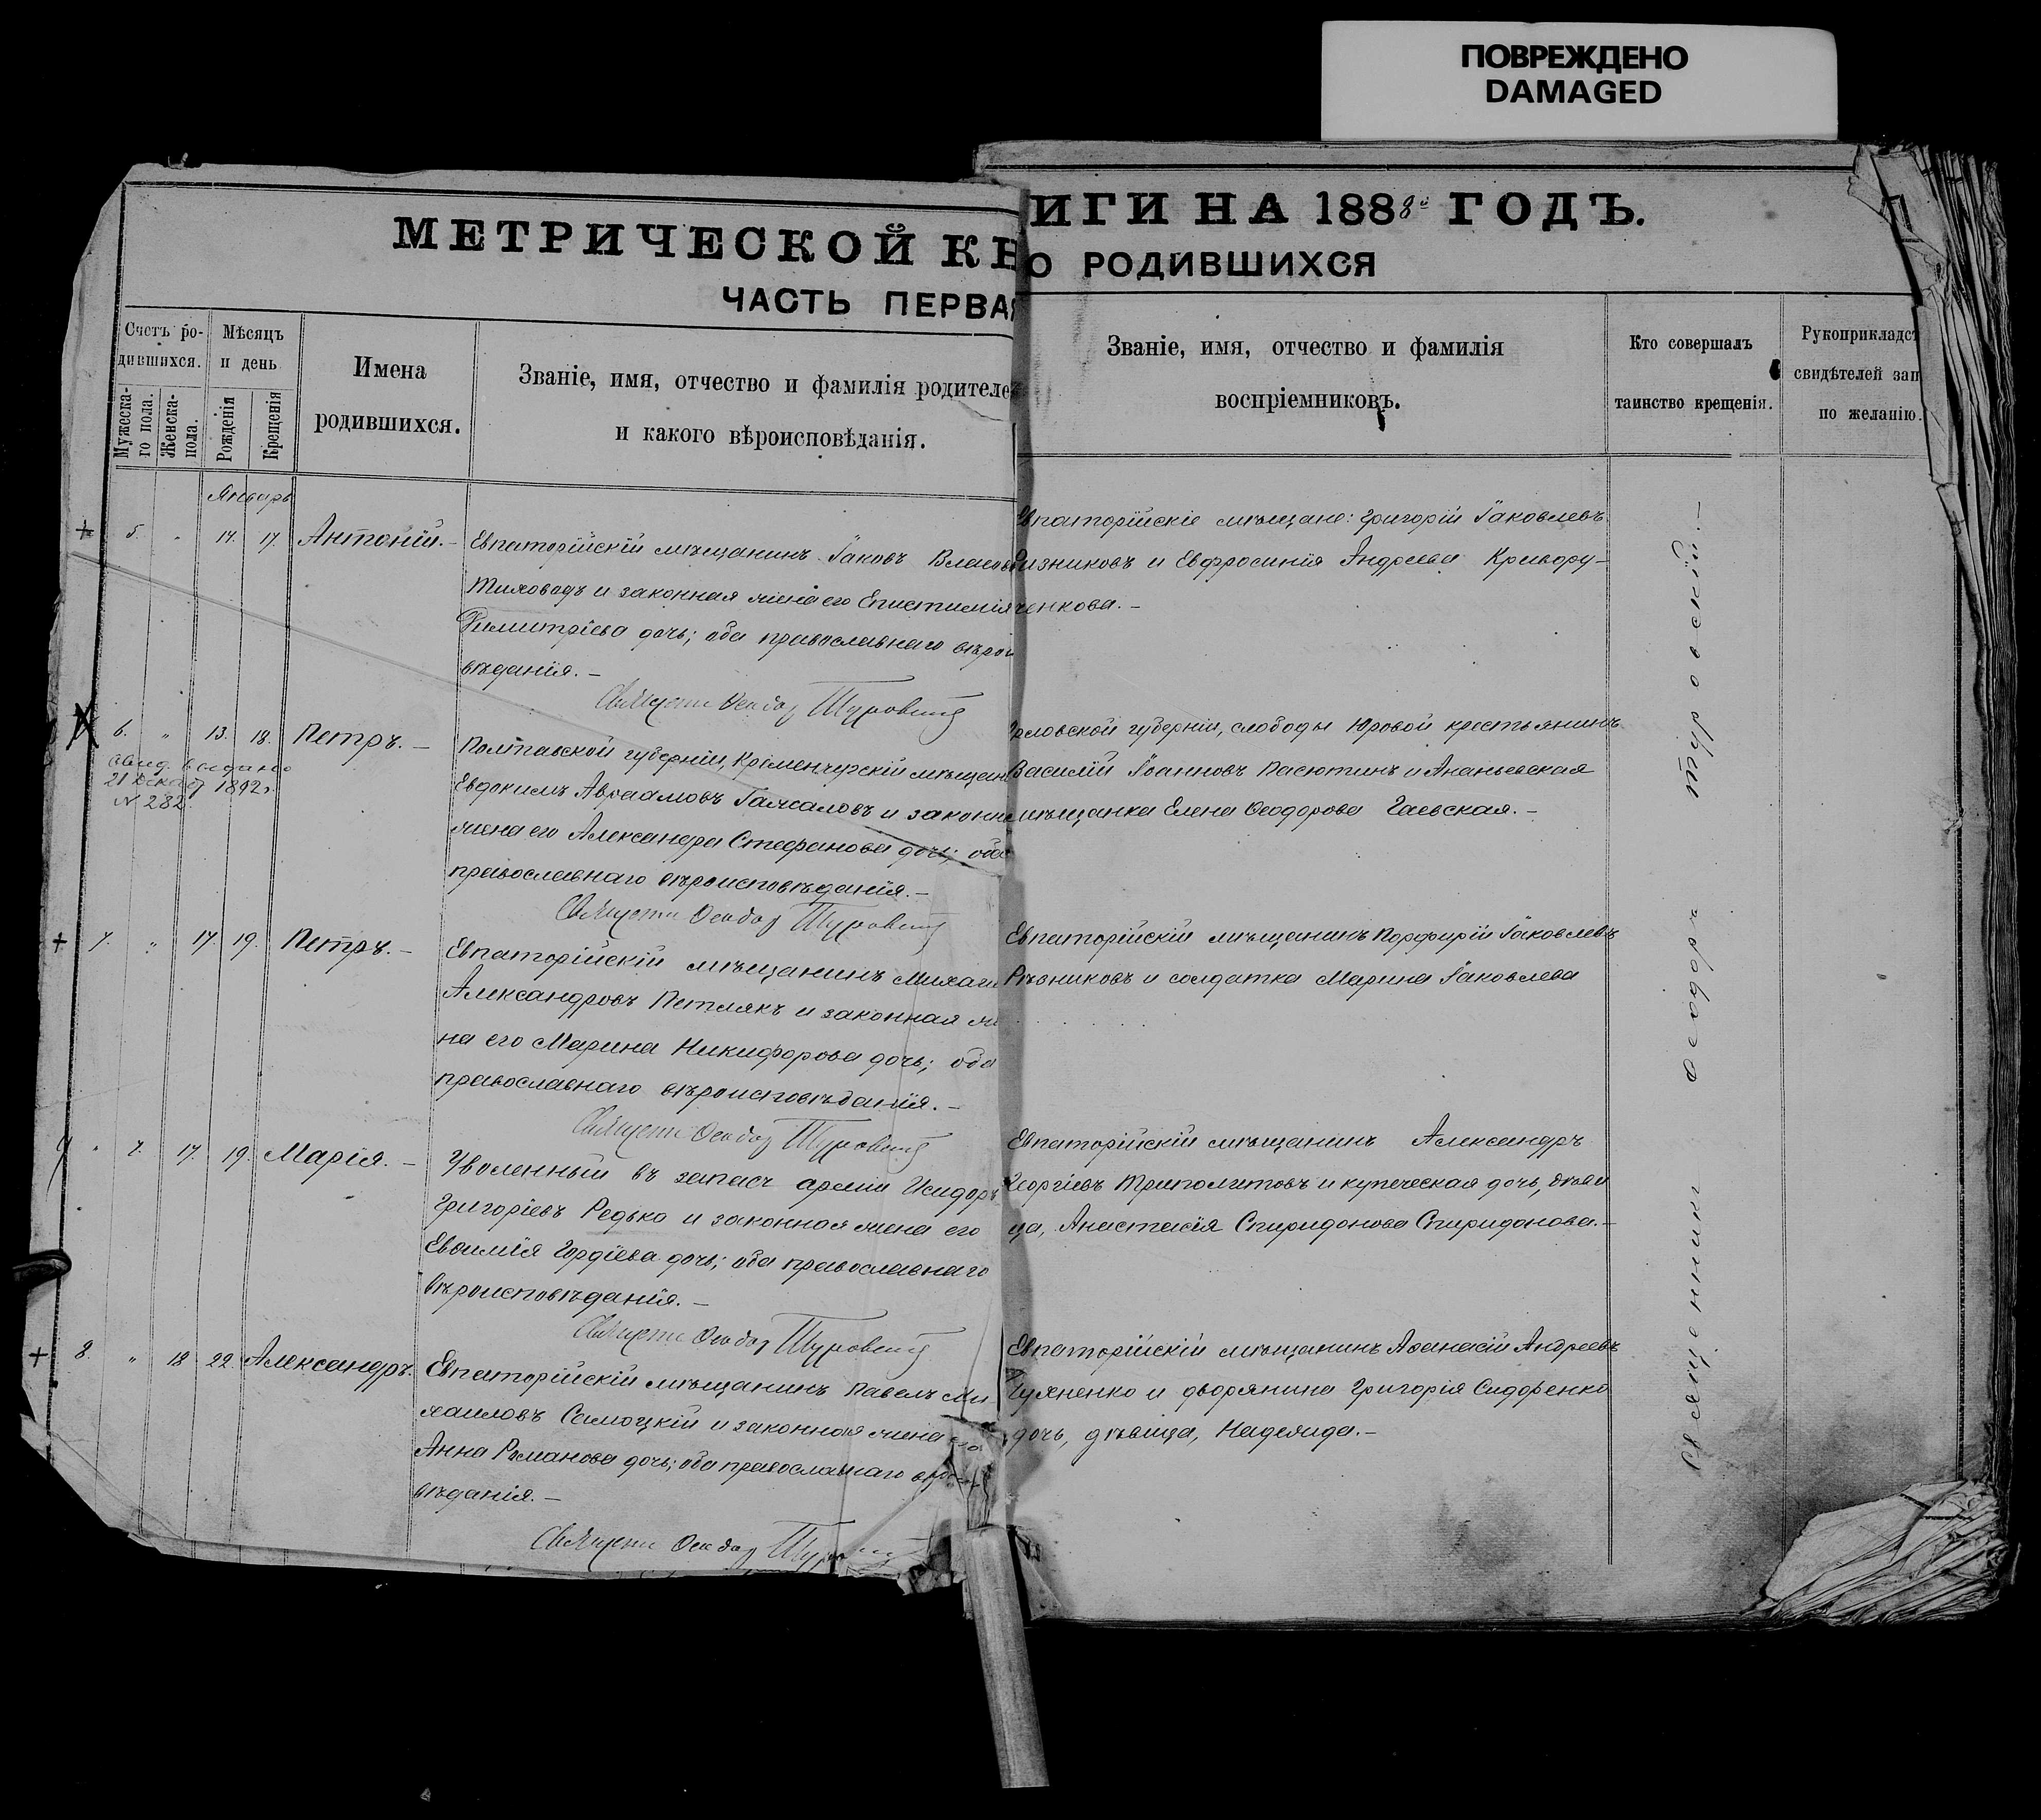 ПОВРЕЖДЕНО
DAMAGED
МЕТРИЧЕСКОЙ КН
ИГИ НА 1888й ГОДЪ.
ЧАСТЬ ПЕРВАЯ
О РОДИВШИХСЯ
Счетъ ро-
дившихся.
Мужеска-
го пола.
Женска-
пола.
Мѣсяцъ
и день
Рожденія
Крещенія
Имена
родившихся.
Званіе, имя, отчество и фамилія родителей
и какого вѣроисповѣданія.
Званіе, имя, отчество и фамилія
воспріемниковъ.
Кто совершалъ
таинство крещенія.
Рукоприкладст
свидѣтелей зап
по желанію.
Январь
5. " 14. 17. Антоній.-
Евпаторійскій мѣщанинъ Іаковъ
и законная жена его Епистимія
Димитріева дочь; оба православнаго вѣрои
вѣданія.-
Священникъ Ѳеодоръ Туровскій
Евпаторійскіе мѣщане: Григорій Іаковлевъ
Ризниковъ и Евфросинія Андреева Кривору-
ченкова.-
6. " 13. 18. Петръ.-
Свид. выдано
21 Декабр 1892г.
N 282.
Полтавской губерніи, Кременчугскій мѣщани
Евдокимъ Авраамовъ и законн
жена его Александра Стефанова дочь; оба
православнаго вѣроисповѣданія.-
Священникъ Ѳеодоръ Туровскій
Орловской губерніи, слободы Юровой крестьянинъ
Василій Іоанновъ Пасютинъ и Ананьевская
мѣщанка Елена Ѳеодорова Гаевская.-
7. " 17. 19. Петръ.-
Евпаторійскій мѣщанинъ Михаил
Александровъ Петлякъ и законная же
на его Марина Никифорова дочь; оба
православнаго вѣроисповѣданія.-
Священникъ Ѳеодоръ Туровскій
Евпаторійскій мѣщанинъ Порфирій Іаковлевъ
Рѣзниковъ и солдатка Марина Іаковлева
" 7. 17. 19. Марія.-
Уволенный въ запасъ арміи Исидоръ
Григоріевъ Редько и законная жена его
Евѳимія Гордіева дочь; оба православнаго
вѣроисповѣданія.-
Священникъ Ѳеодоръ Туровскій
Евпаторійскій мѣщанинъ Александръ
Георгіевъ Триполитовъ и купеческая дочь, дѣви
ца, Анастасія Спиридонова Спиридонова.-
8. " 18 22 Александръ.
Евпаторійскій мѣщанинъ Павелъ Ми
хаиловъ Самоцкій и законная жена его
Анна Романова дочь; оба православнаго вѣроис
вѣданія.-
Священникъ Ѳеодоръ Туровскій
Евпаторійскій мѣщанинъ Аѳанасій Андреевъ
и дворянина Григорія Сидоренко
дочь, дѣвица, Надежда.-
Священникъ Ѳеодоръ Туровскій.-